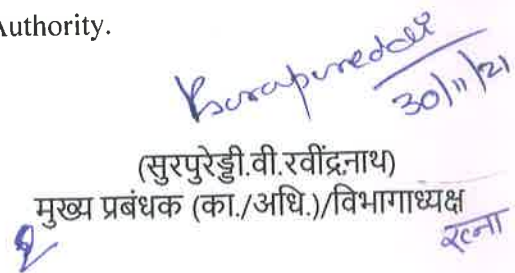 Authority.
Surapureddi
30/11/21
(सुरपुरेड्डी.वी.रवींद्रनाथ)
मुख्य प्रबंधक (का./अधि.)/विभागाध्यक्ष
रत्ना